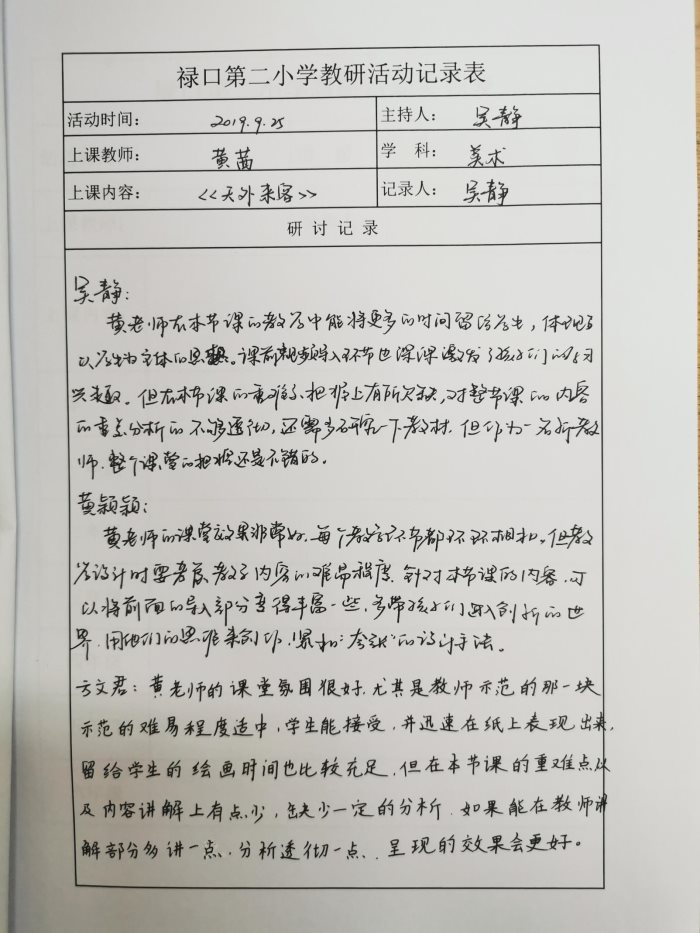 禄口第二小学教研活动记录表
活动时间： 2019.9.25 主持人： 吴静
上课教师： 黄茜 学 科： 美术
上课内容： <<天外来客>> 记录人： 吴静
研 讨 记 录
吴静：
黄老师在本节课的教学中能将更多的时间留给学生，体现了
以学生为主体的思想。课前视频导入环节也深深激发了孩子们的学习
兴趣。但在本节课的重难点把握上有所欠缺，对整节课的内容
的重点分析的不够透彻，还需多研究一下教材。但作为一名新教
师，整个课堂的把握还是不错的。
黄颖颖：
黄老师的课堂效果非常好，每个教学环节都环环相扣。但教
学设计时要考虑教学内容的难易程度。针对本节课的内容，可
以将前面的导入部分变得丰富一些，多带孩子们进入创新的世
界，用他们的思维来创作，紧扣“夸张”的设计手法。
方文君：黄老师的课堂氛围很好，尤其是教师示范的那一块
示范的难易程度适中，学生能接受，并迅速在纸上表现出来，
留给学生的绘画时间也比较充足，但在本节课的重难点以
及内容讲解上有点少，缺少一定的分析，如果能在教师讲
解部分多讲一点，分析透彻一点，呈现的效果会更好。